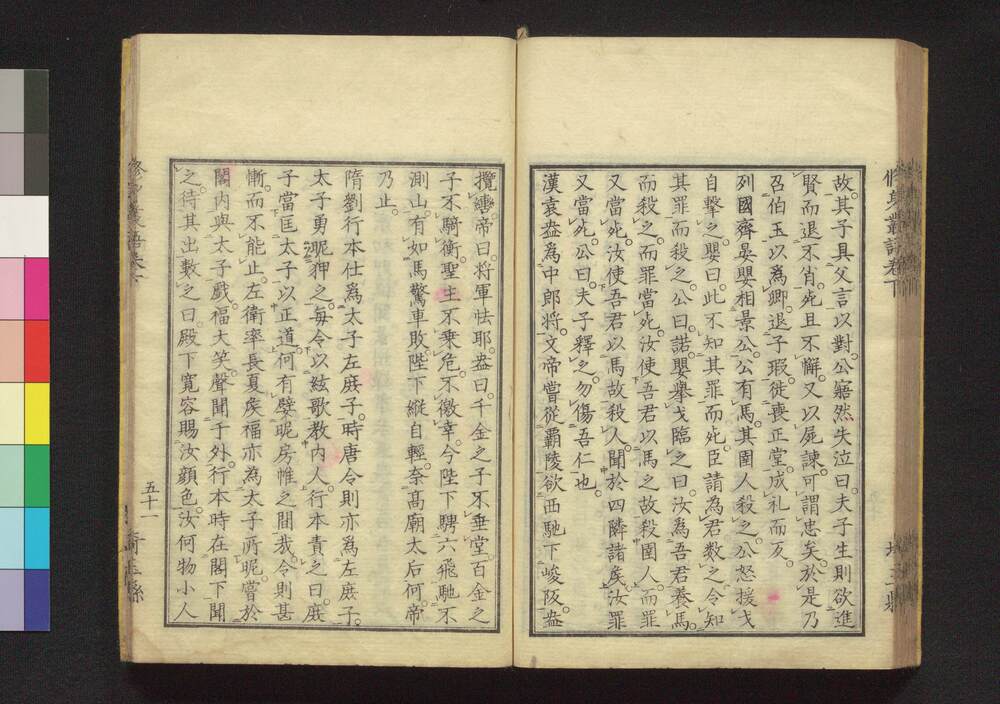 故其子具父言以對公寤然失泣曰夫子生則欲進
賢而退不肖死且不懈又以屍諫可謂忠矣於是乃
召伯玉以爲卿退子瑕徙喪正堂成礼而反
列國齊晏嬰相景公公有馬其圉人殺之公怒援戈
自擊之嬰曰此不知其罪而死臣請為君数之令知
其罪而殺之公曰諾嬰舉戈臨之曰汝為吾君養馬
而殺之而罪當死汝使吾君以馬之故殺圉人而罪
又當死汝使吾君以馬故殺人聞於四隣諸矦汝罪
又當死公曰夫子釋之勿傷吾仁也
漢袁盎為中郎将文帝嘗從覇陵欲西馳下峻阪盎
攬轡帝曰将軍怯耶盎曰千金之子不垂堂百金之
子不騎衡聖主不乗危不徼幸今陛下騁六飛馳不
測山有如馬驚車敗陛下縦自輕奈髙廟太后何帝
乃止
隋劉行本仕爲太子左庶子時唐令則亦爲左庶子
太子勇昵狎之每令以絃歌教内人行本責之曰庶
子當匡太子以正道何有嬖昵房帷之間哉令則甚
慚而不能止左衛率長夏矦福亦為太子所昵嘗於
閤内與太子戯福大笑聲聞于外行本時在閤下聞
之待其出數之曰殿下寬容賜汝顔色汝何物小人
五十一